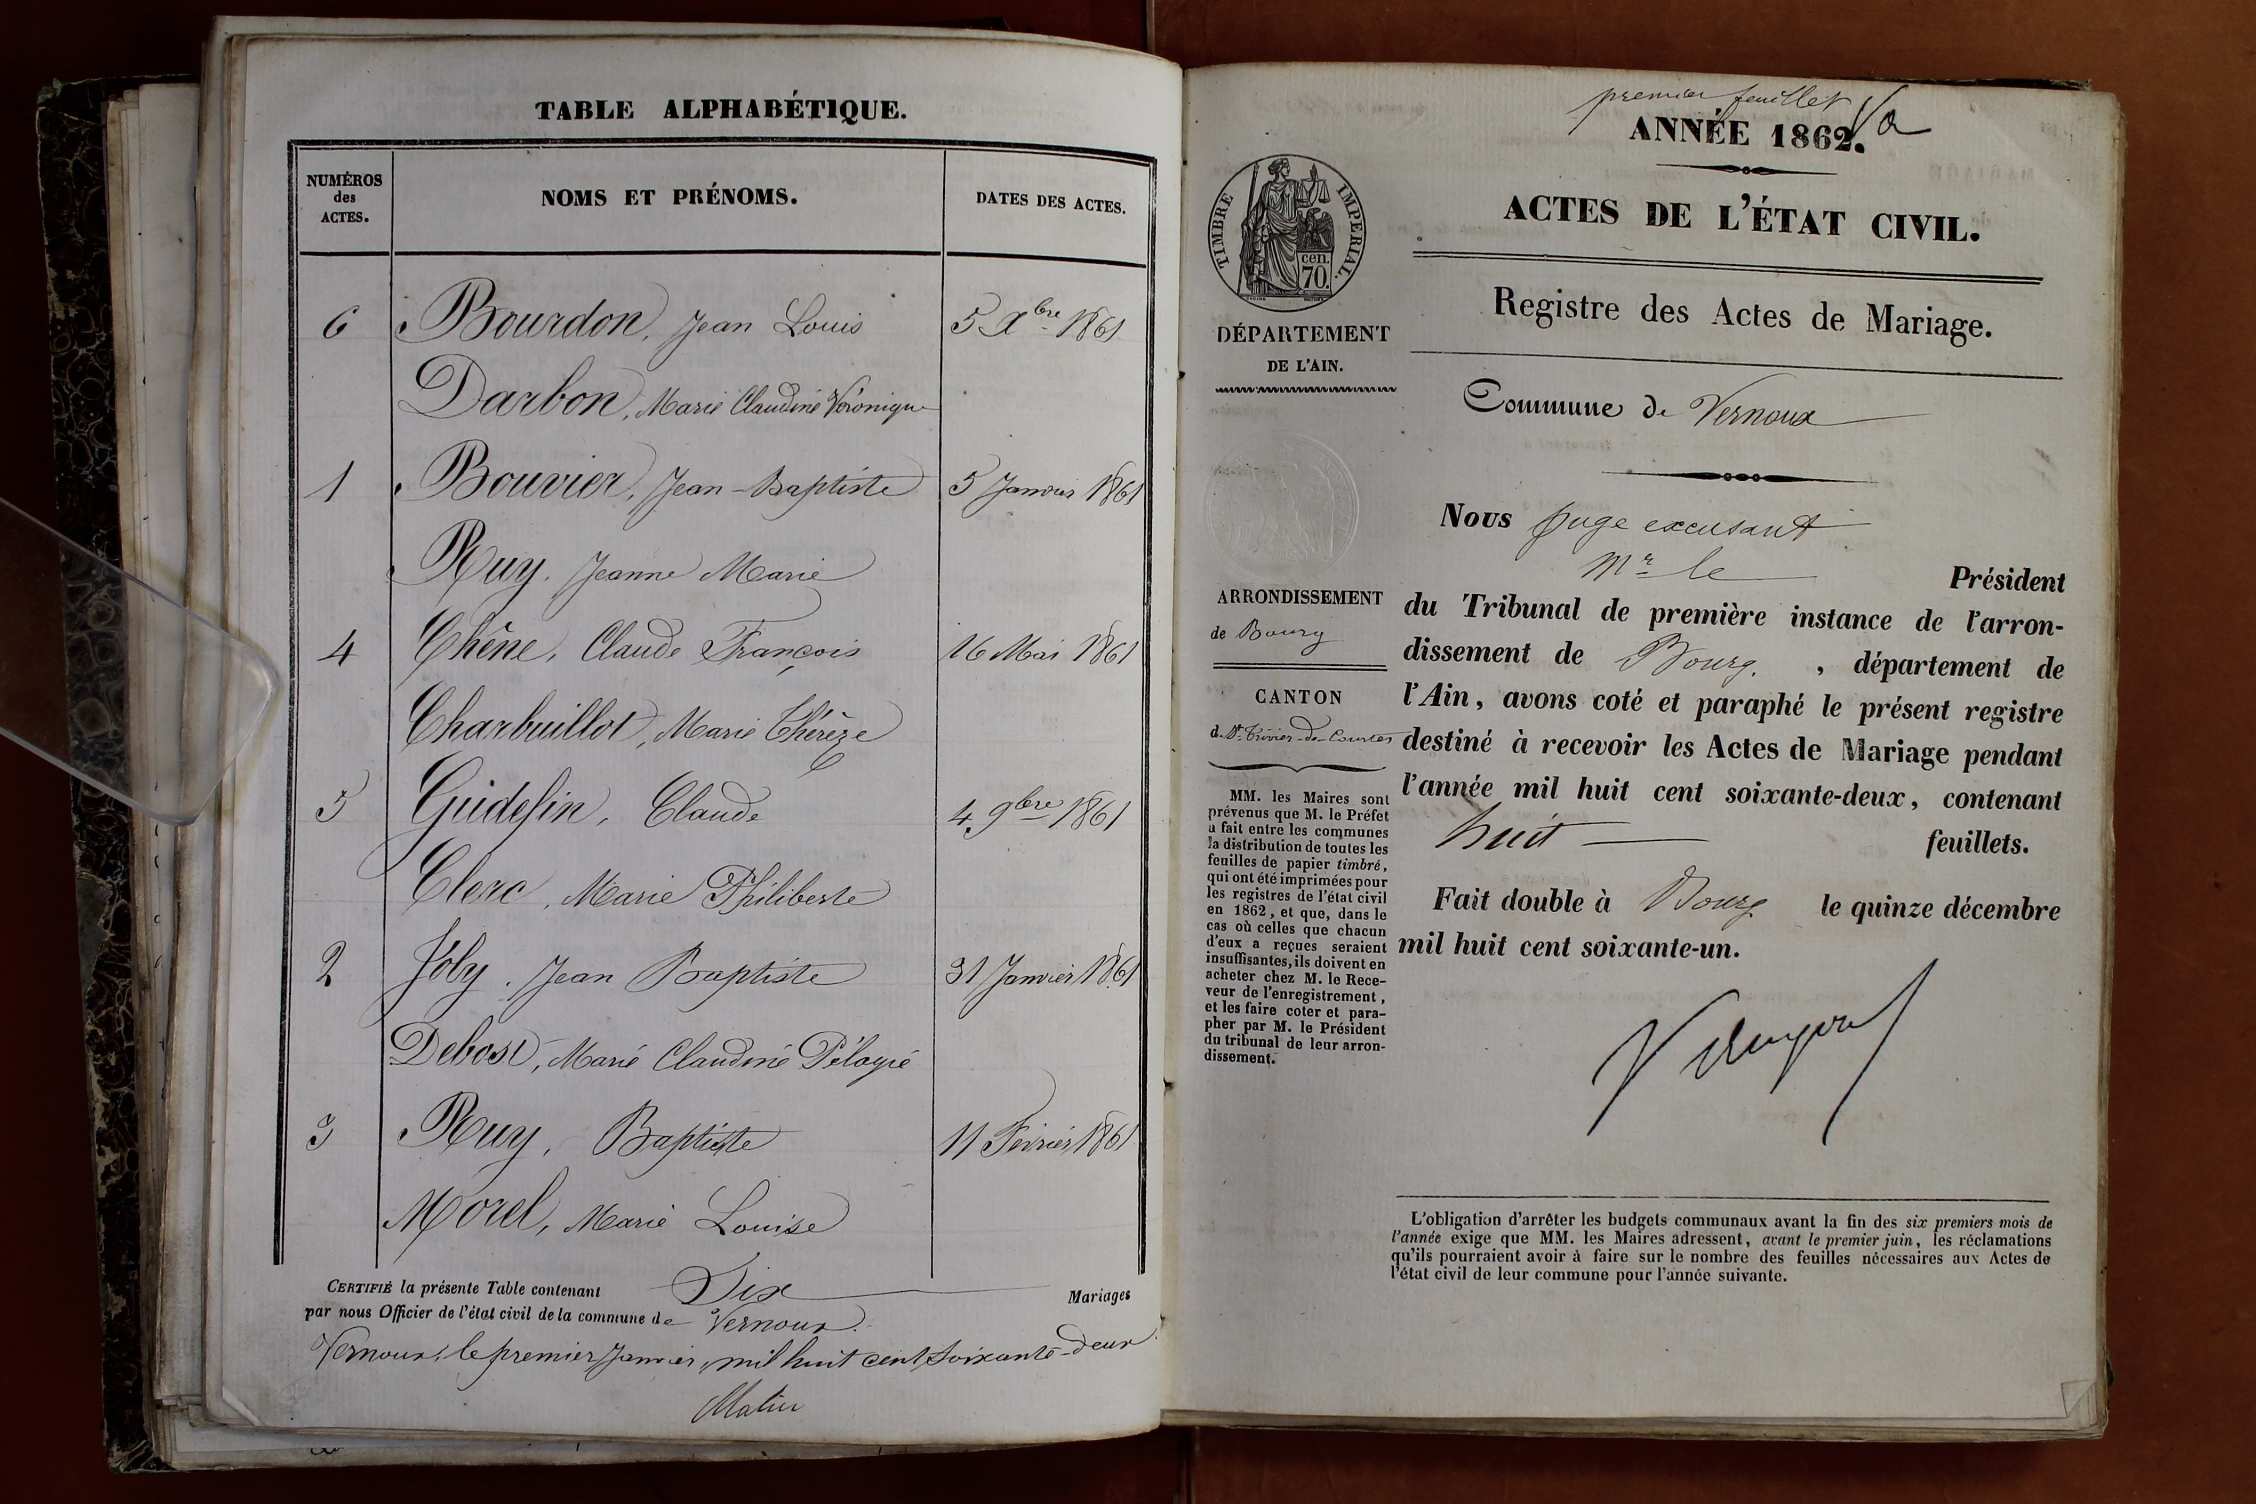 TABLE ALPHABÉTIQUE.
NUMÉROS
des
ACTES.
NOMS ET PRÉNOMS.
DATES DES ACTES.
6 Bourdon, Jean Louis 5 Xbre 1861
Darbon, Marie Claudine Véronique
1 Bouvier, Jean-Baptiste 5 Janvier 1861
Ruy, Jeanne Marie
4 Chêne, Claude François 16 Mai 1861
Charbuillot, Marie Thérèze
5 Guidefin, Claude 4 9bre 1861
Clerc, Marie Philiberte
2 Joly, Jean Baptiste 31 Janvier 1861
Debost, Marie Claudine Pélagie
3 Ruy, Baptiste 11 Février 1861
Morel, Marie Louise
CERTIFIÉ la présente Table contenant Six Mariages
par nous Officier de l'état civil de la commune de Vernoux.
Vernoux, le premier Janvier, mil huit cent soixante-deux
premier feuillet
ANNÉE 1862.
ACTES DE L'ÉTAT CIVIL.
TIMBRE IMPÉRIAL.
cen.
70.
DÉPARTEMENT
DE L'AIN.
Registre des Actes de Mariage.
Commune de Vernoux
ARRONDISSEMENT
de Bourg
CANTON
de St Trivier-de-Courtes
MM. les Maires sont
prévenus que M. le Préfet
a fait entre les communes
la distribution de toutes les
feuilles de papier timbré,
qui ont été imprimées pour
les registres de l'état civil
en 1862, et que, dans le
cas où celles que chacun
d'eux a reçues seraient
insuffisantes, ils doivent en
acheter chez M. le Rece-
veur de l'enregistrement,
et les faire coter et para-
pher par M. le Président
du tribunal de leur arron-
dissement.
Nous juge excusant
Mr le Président
du Tribunal de première instance de l'arron-
dissement de Bourg. , département de
l'Ain, avons coté et paraphé le présent registre
destiné à recevoir les Actes de Mariage pendant
l'année mil huit cent soixante-deux, contenant
huit feuillets.
Fait double à Bourg le quinze décembre
mil huit cent soixante-un.
L'obligation d'arrêter les budgets communaux avant la fin des six premiers mois de
l'année exige que MM. les Maires adressent, avant le premier juin, les réclamations
qu'ils pourraient avoir à faire sur le nombre des feuilles nécessaires aux Actes de
l'état civil de leur commune pour l'année suivante.